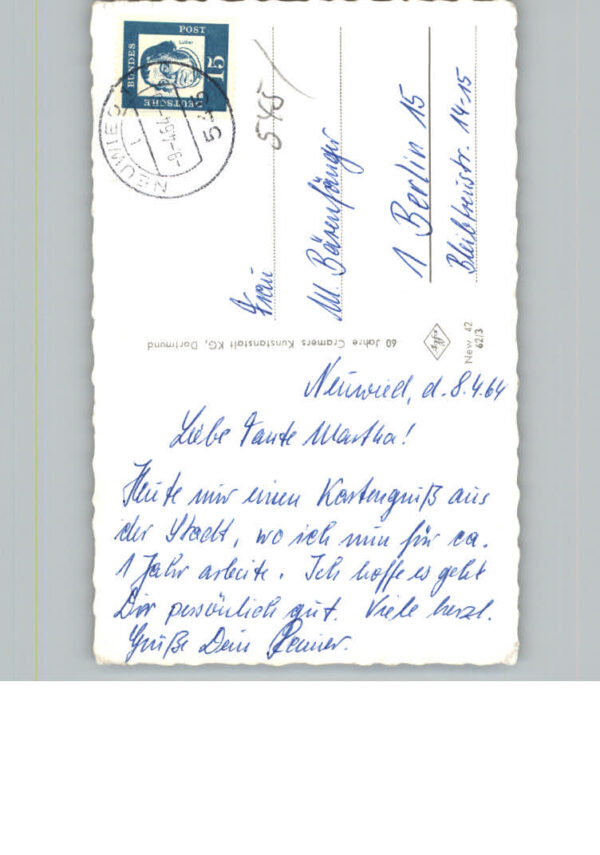 DEUTSCHE
BUNDES
POST
15
Luther
NEUWIED
-9.-4.64-
545
Frau
M. Bärenfänger
1 Berlin 15
Bleibtreustr. 14-15
60 Jahre Cramers Kunstanstalt KG, Dortmund
New. 42
62/3
Neuwied, d. 8.4.64
Liebe Tante Martha!
Heute nur einen Kartengruß aus
der Stadt, wo ich nun für ca.
1 Jahr arbeite. Ich hoffe es geht
Dir persönlich gut. Viele herzl.
Grüße Dein